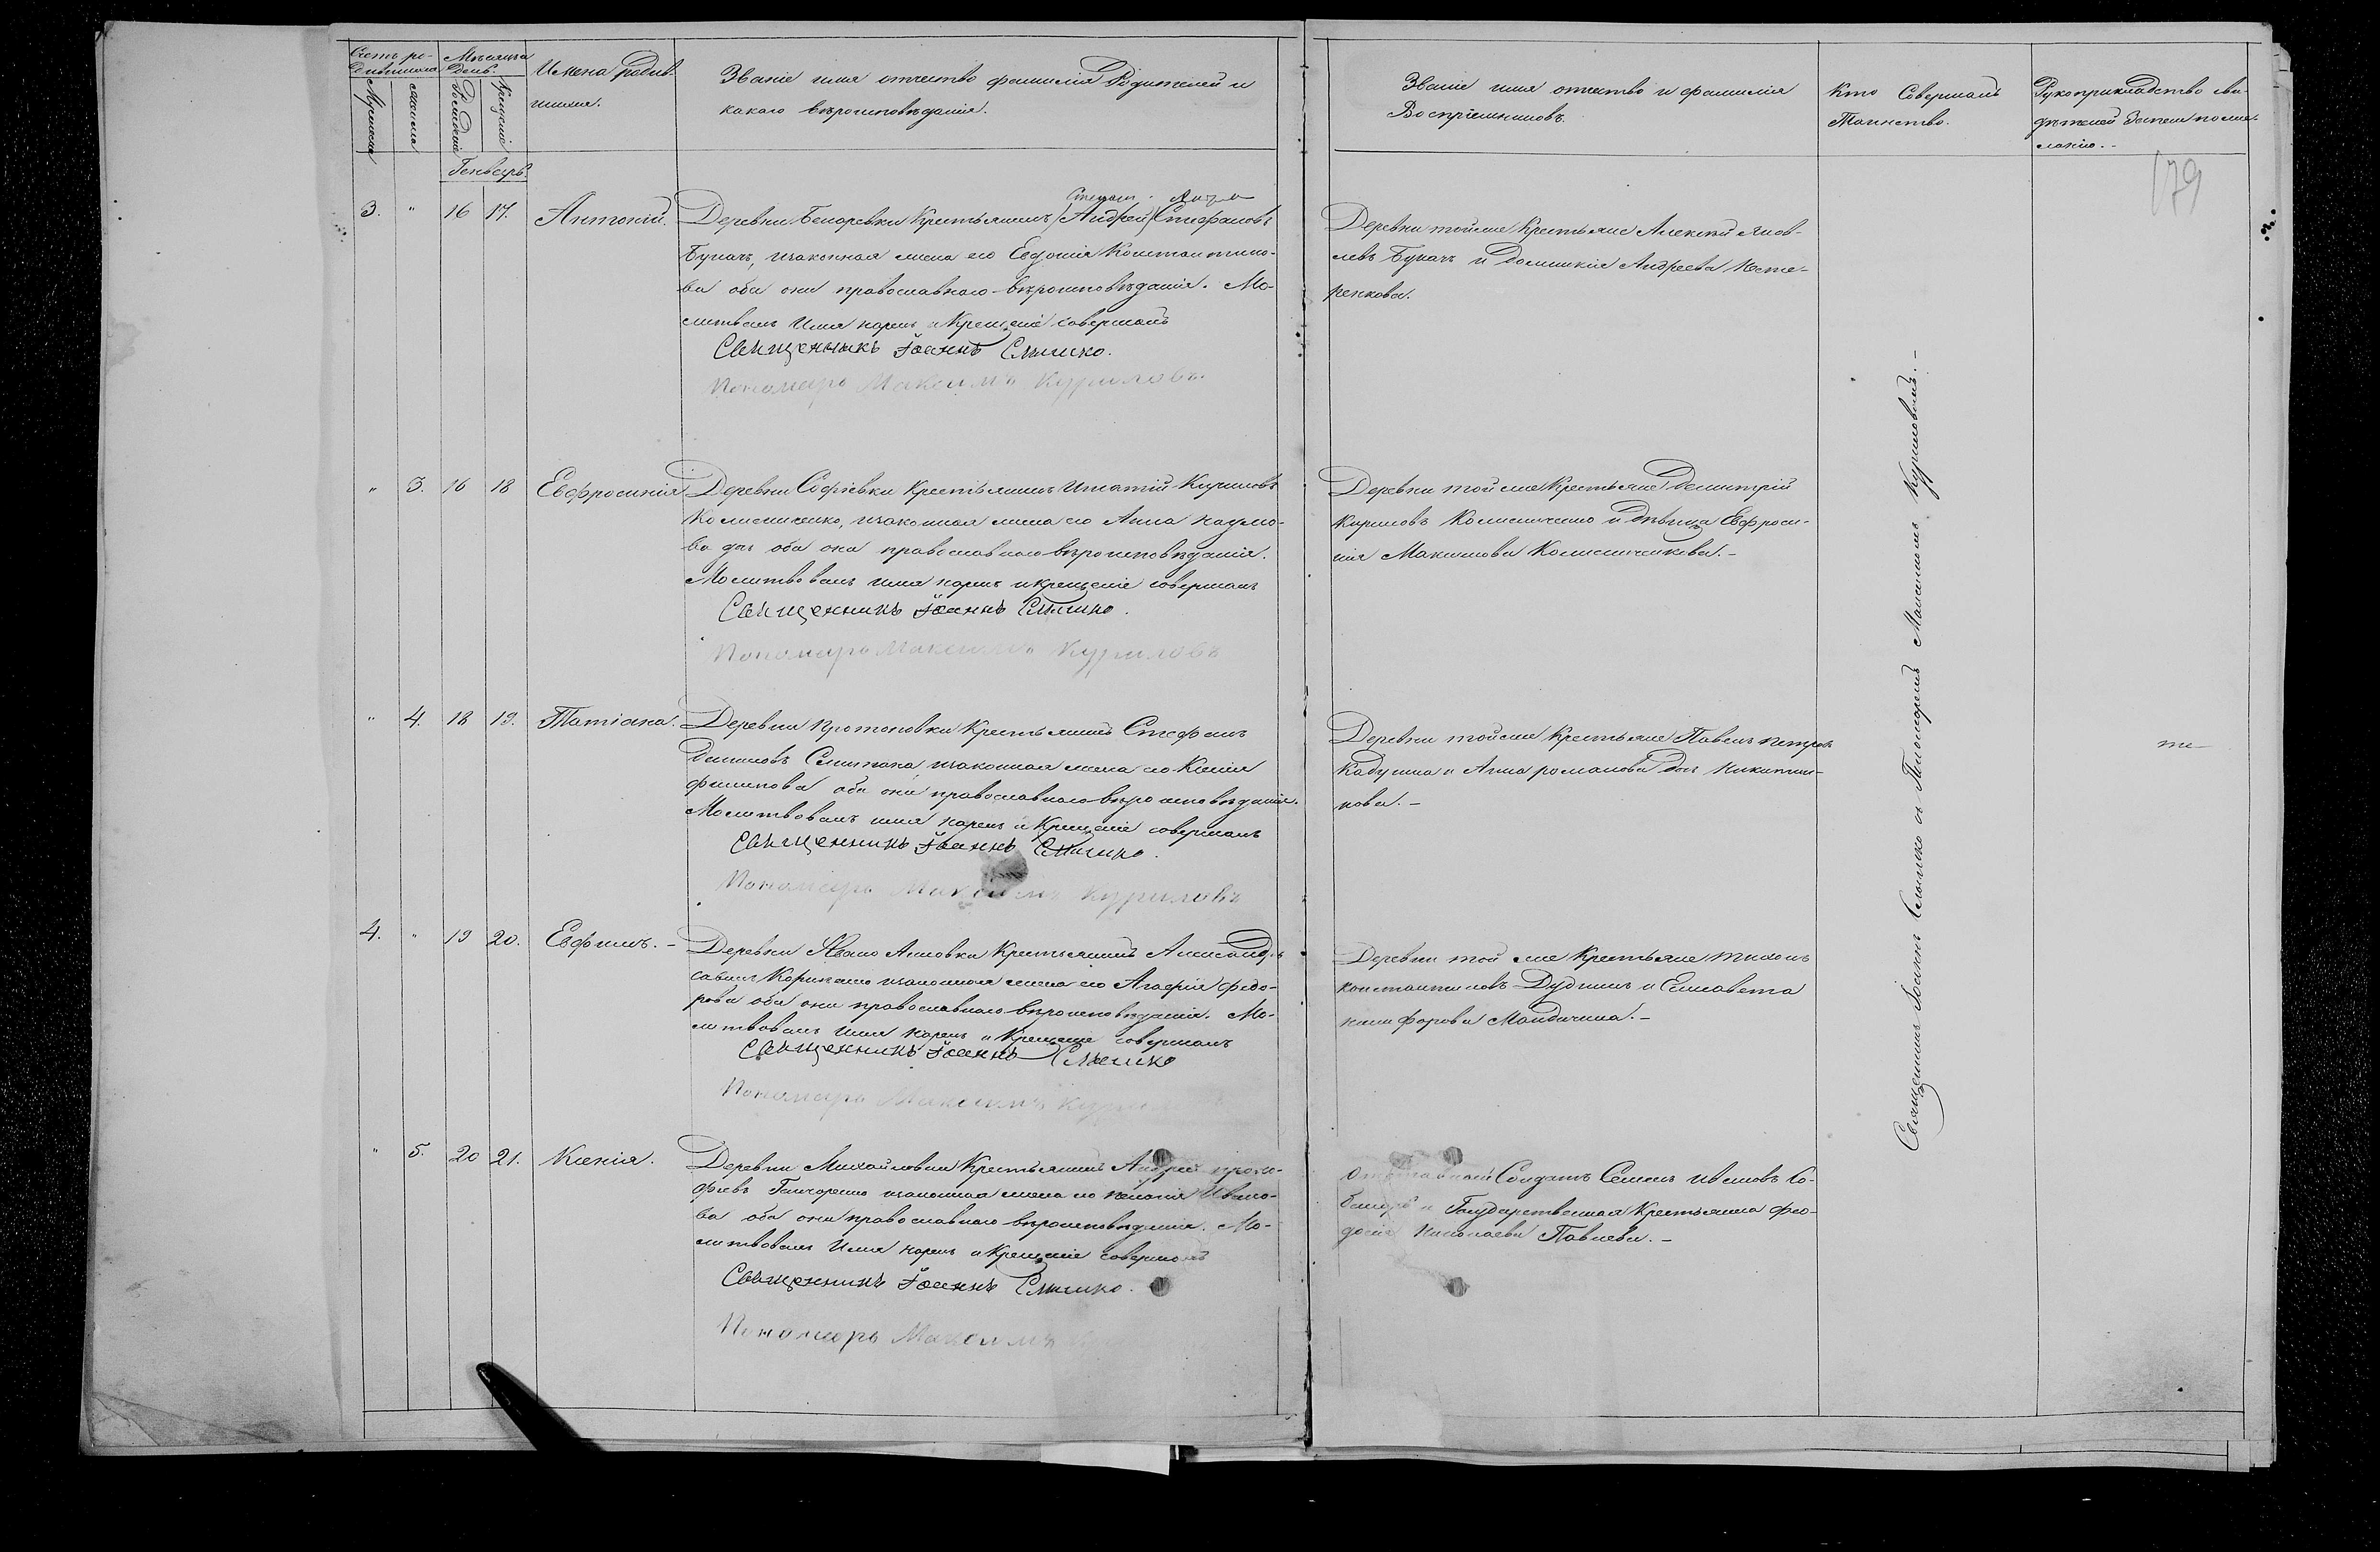 Счетъ ро-
дившихся
Мѣсяцъ и
день.
Имена родив-
шихся.
Званіе имя отчество фамилія Родителей и
какаго вѣроисповѣданія.
Званіе имя отчество и фамилія
Воспріемниковъ.
Кто Совершалъ
Таинство.
Рукоприкладство сви-
дѣтелей записи по же-
ланію.
Мужеска
женска
Рожденіе
Крещеніе
Генварь.
179
3. " 16 17. Антоній.
Деревни Крестьянинъ Андрей Стефановъ
Бугачъ, изаконная жена его Евдокія Константино-
ва оба они православнаго вѣроисповѣданія. Мо-
литвалъ Имя нарекъ и Крещеніе совершалъ
Священникъ Іоаннъ
Пономарь Максимъ Куриловъ.
Деревни тойже Крестьяне Алексѣй Яков-
левъ Бугачъ и Домникія Андреева Несте-
ренкова.
" 3. 16 18 Евфросинія
Деревни Софіевки Крестьянинъ Игнатій Кириловъ
изаконная жена его Анна Наумо-
ва оба они православнаго вѣроисповѣданія.
Молитвовалъ имя нарекъ и крещеніе совершалъ
Священникъ Іоаннъ
Пономарь Максимъ Куриловъ
Деревни той же Крестьяне Димитрій
Кириловъ и дѣвица Евфроси-
нія Максимова
" 4. 18 19. Татіана.
Деревни Протоповки Крестьянинъ Стефанъ
Даниловъ изаконная жена его Ксенія
Филипова оба они православнаго вѣроисповѣданія.
Молитвовалъ имя нарекъ и Крещеніе совершалъ
Священникъ Іоаннъ
Пономарь Максимъ Куриловъ
Деревни тойже Крестьяне Павелъ Петровъ
и Анна Романова дочь Никити-
нова.
4. " 19 20. Евфимъ.
Деревни Ивано Анновки Крестьянинъ Александръ
изаконная жена его Агафія Федо-
рова оба они православнаго вѣроисповѣданія. Мо-
литвовалъ имя нарекъ и Крещеніе совершалъ
Священникъ Іоаннъ
Пономарь Максимъ
Деревни той же Крестьяне Тихонъ
Константиновъ Дудникъ и Елисавета
Никифорова
" 5. 20 21. Ксенія.
Деревни Михайловки Крестьянинъ Андрей Проко-
фіевъ Гончаренко изаконная жена его Ивано-
ва оба они православнаго вѣроисповѣданія. Мо-
литвовалъ Имя нарекъ и Крещеніе совершалъ
Священникъ Іоаннъ
Пономарь Максимъ
Отставной Солдатъ Семенъ Ивановъ
и Государственная Крестьянка Фео-
досія Николаева Павлева.
Священникъ Іоаннъ съ Пономаремъ Максимомъ Куриловымъ.